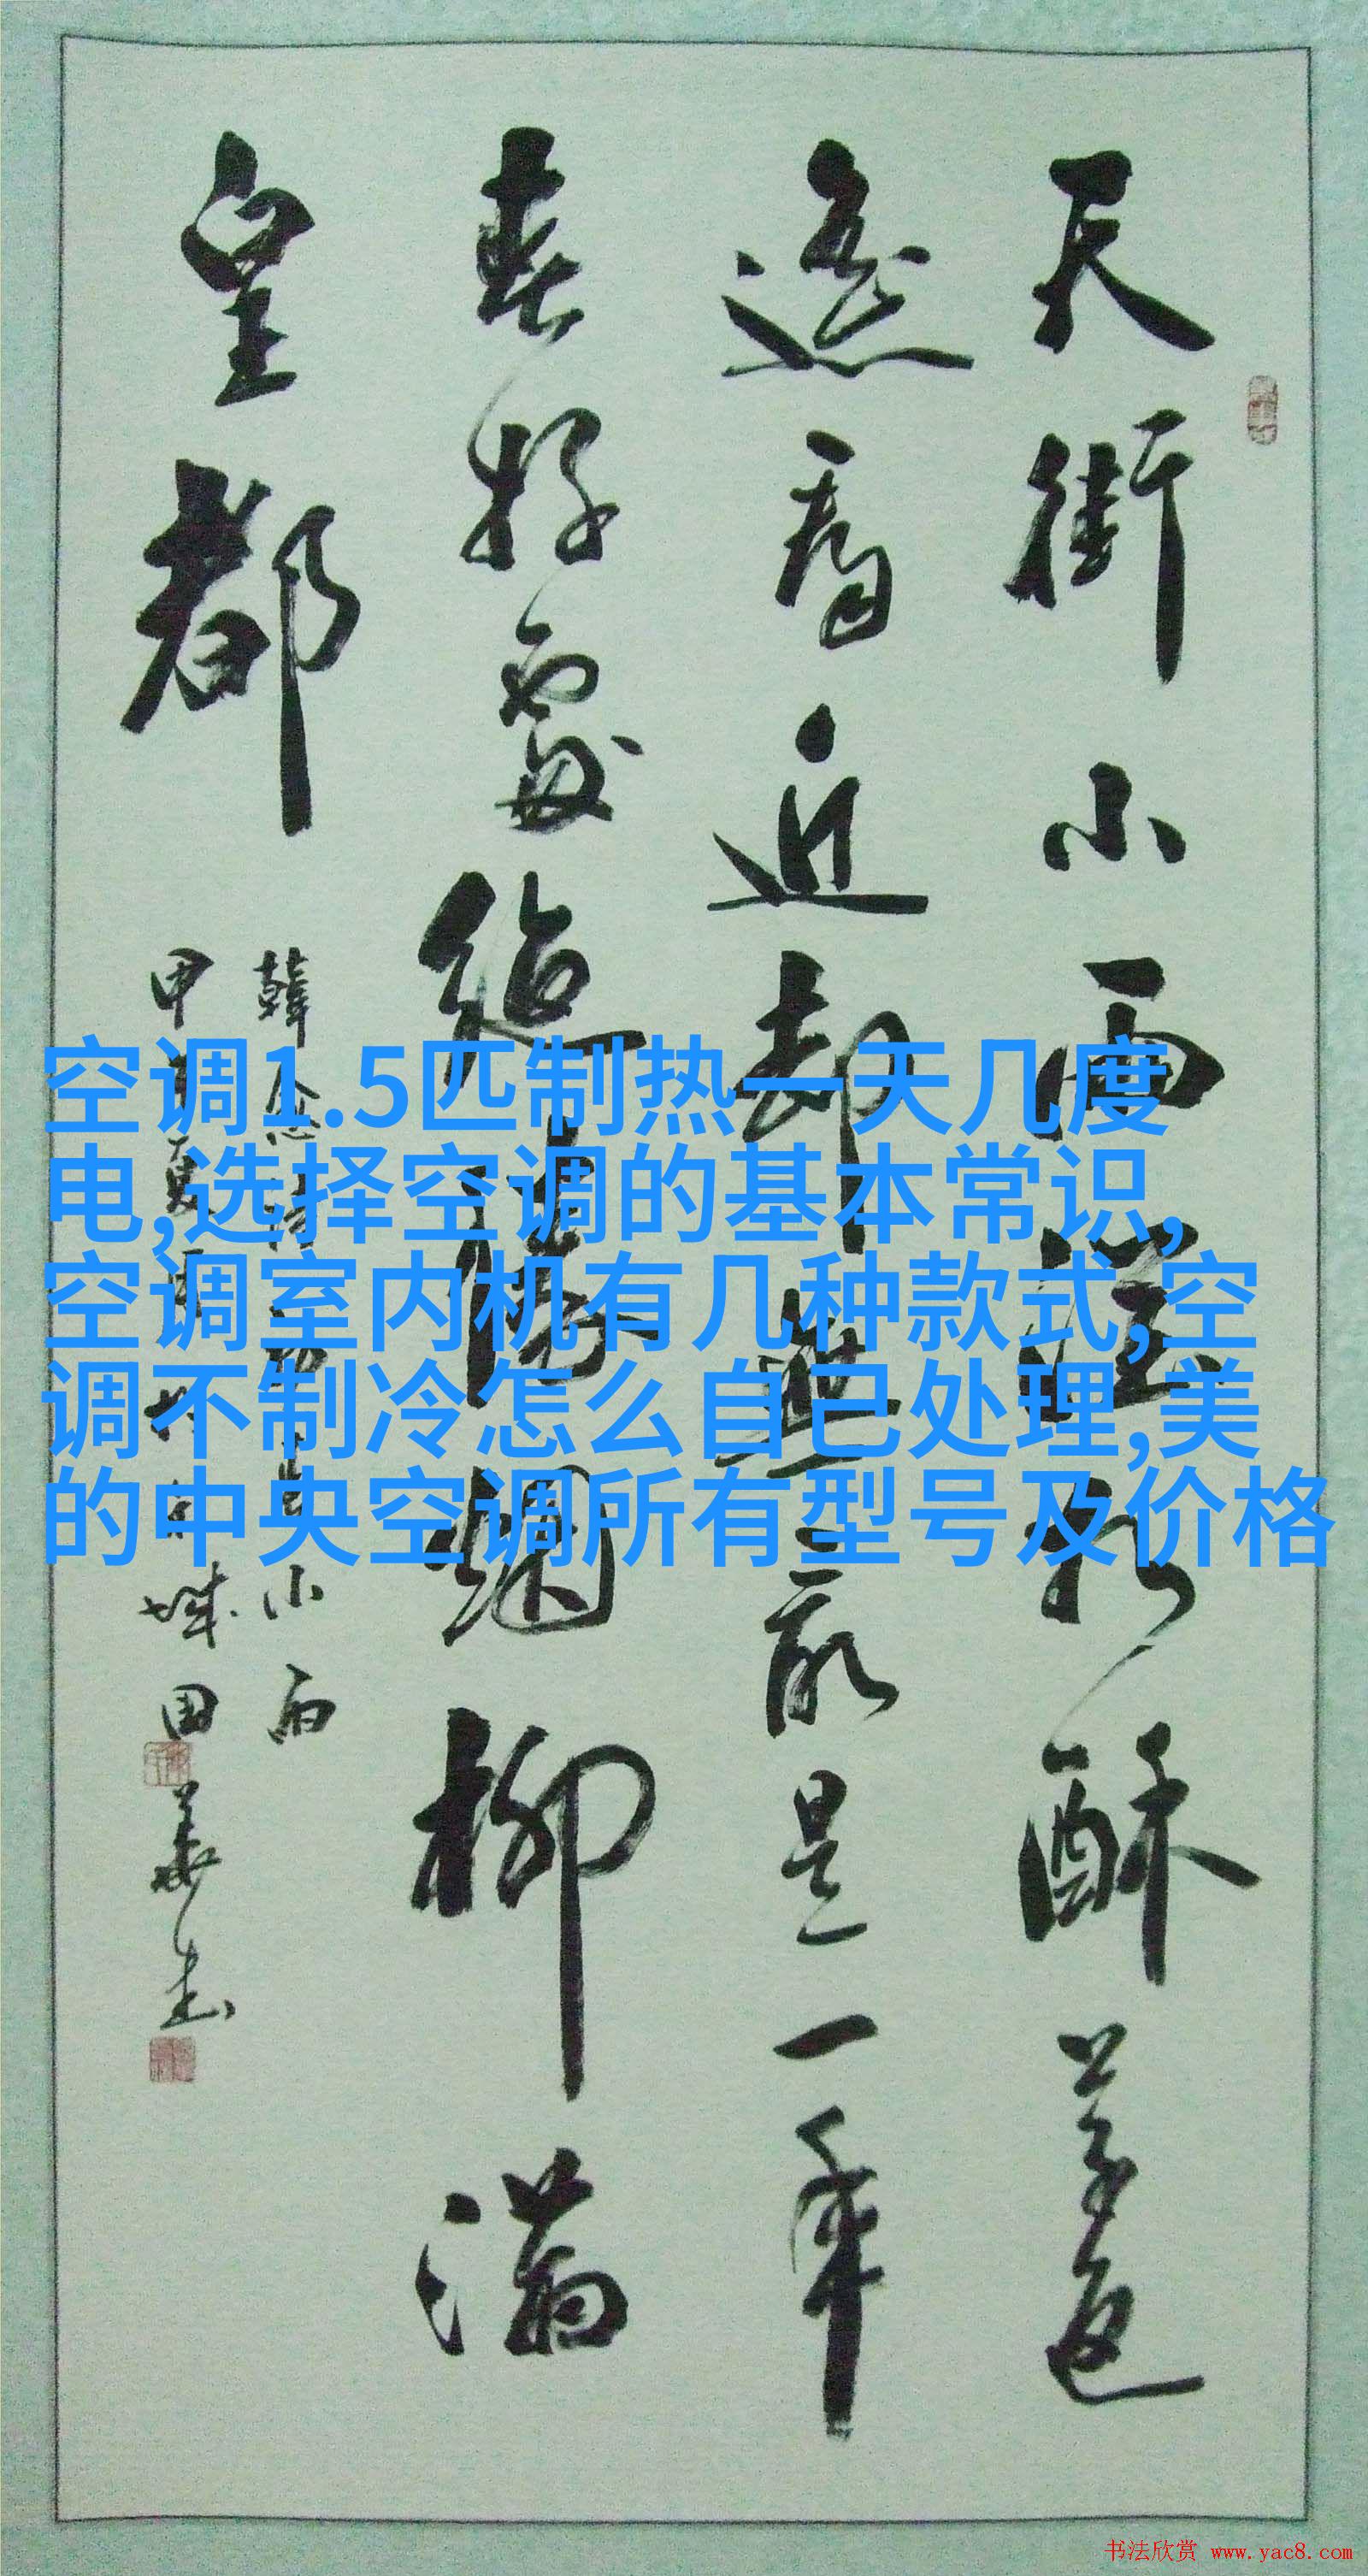 天街小雨潤如酥草色
遥看近却無最是一年
春好處絶勝烟柳滿
皇都
韓愈詩初春小雨
甲夏城国華书
空调1.5匹制热一天几度
电,选择空调的基本常识,
空调室内机有几种款式,空
调不制冷怎么自己处理,美
的中央空调所有型号及价格
书法欣赏 www.yac8.com